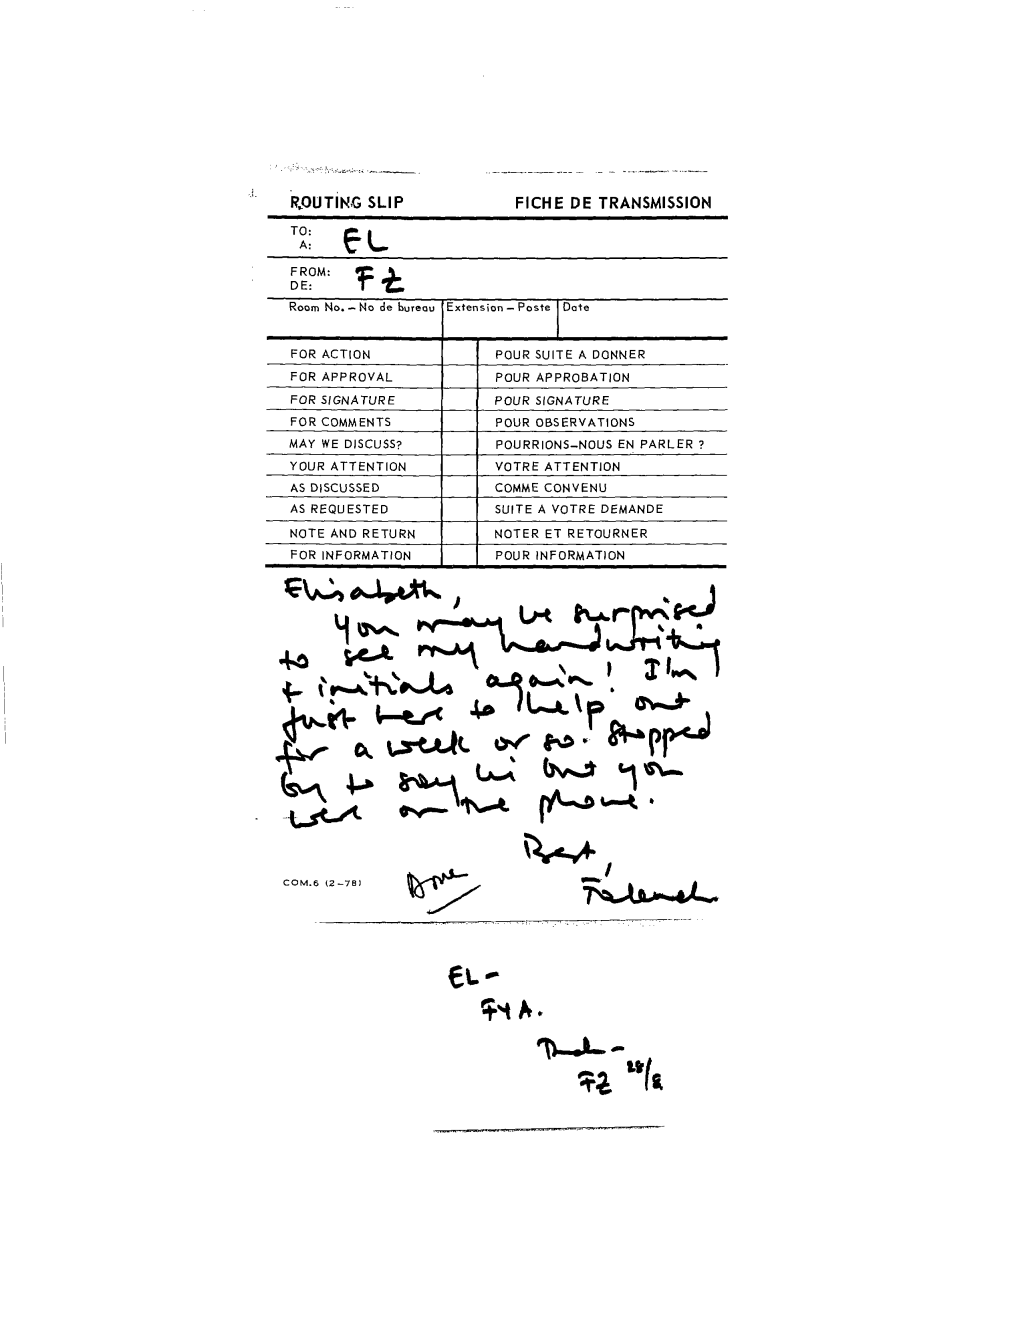 ROUTING SLIP FICHE DE TRANSMISSION
TO:
A: EL
FROM:
DE: FZ
Room No. – No de bureau Extension – Poste Date
FOR ACTION POUR SUITE A DONNER
FOR APPROVAL POUR APPROBATION
FOR SIGNATURE POUR SIGNATURE
FOR COMMENTS POUR OBSERVATIONS
MAY WE DISCUSS? POURRIONS-NOUS EN PARLER ?
YOUR ATTENTION VOTRE ATTENTION
AS DISCUSSED COMME CONVENU
AS REQUESTED SUITE A VOTRE DEMANDE
NOTE AND RETURN NOTER ET RETOURNER
FOR INFORMATION POUR INFORMATION
Elisabeth,
You may be surprised
to see my handwriting
+ initials again! I'm
just here to help out
for a week or so. Stopped
by to say hi but you
were on the phone.
Best,
COM.6 (2-78) Done
EL -
FYA.
FZ 28/8